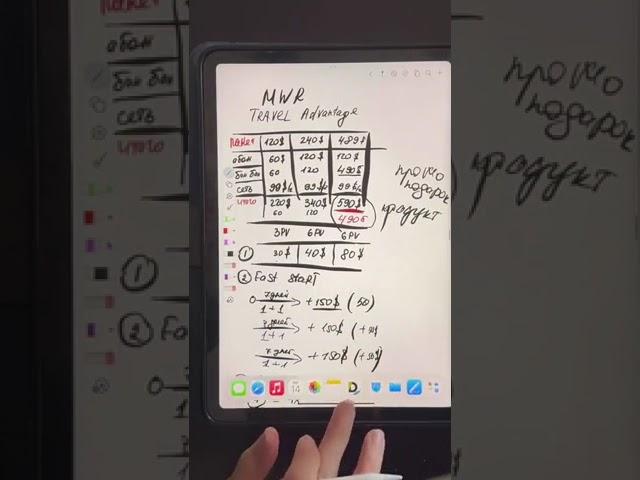 MWR
TRAVEL Advantage
Пакет 120$ 240$ 489$
абон 60$ 120$ 120$
бон бон 60 120 490$
сеть 99$/г 99$/г 99$/г
итого 220$ 340$ 590$
60 120 490$
3PV 6PV 6PV
① 30$ 40$ 80$
② Fast start
7 дней
1+1 +150$ (50)
7 дней
1+1 +150$ (+50)
7 дней
1+1 +150$ (+50$)
промо
подарок
продукт
14